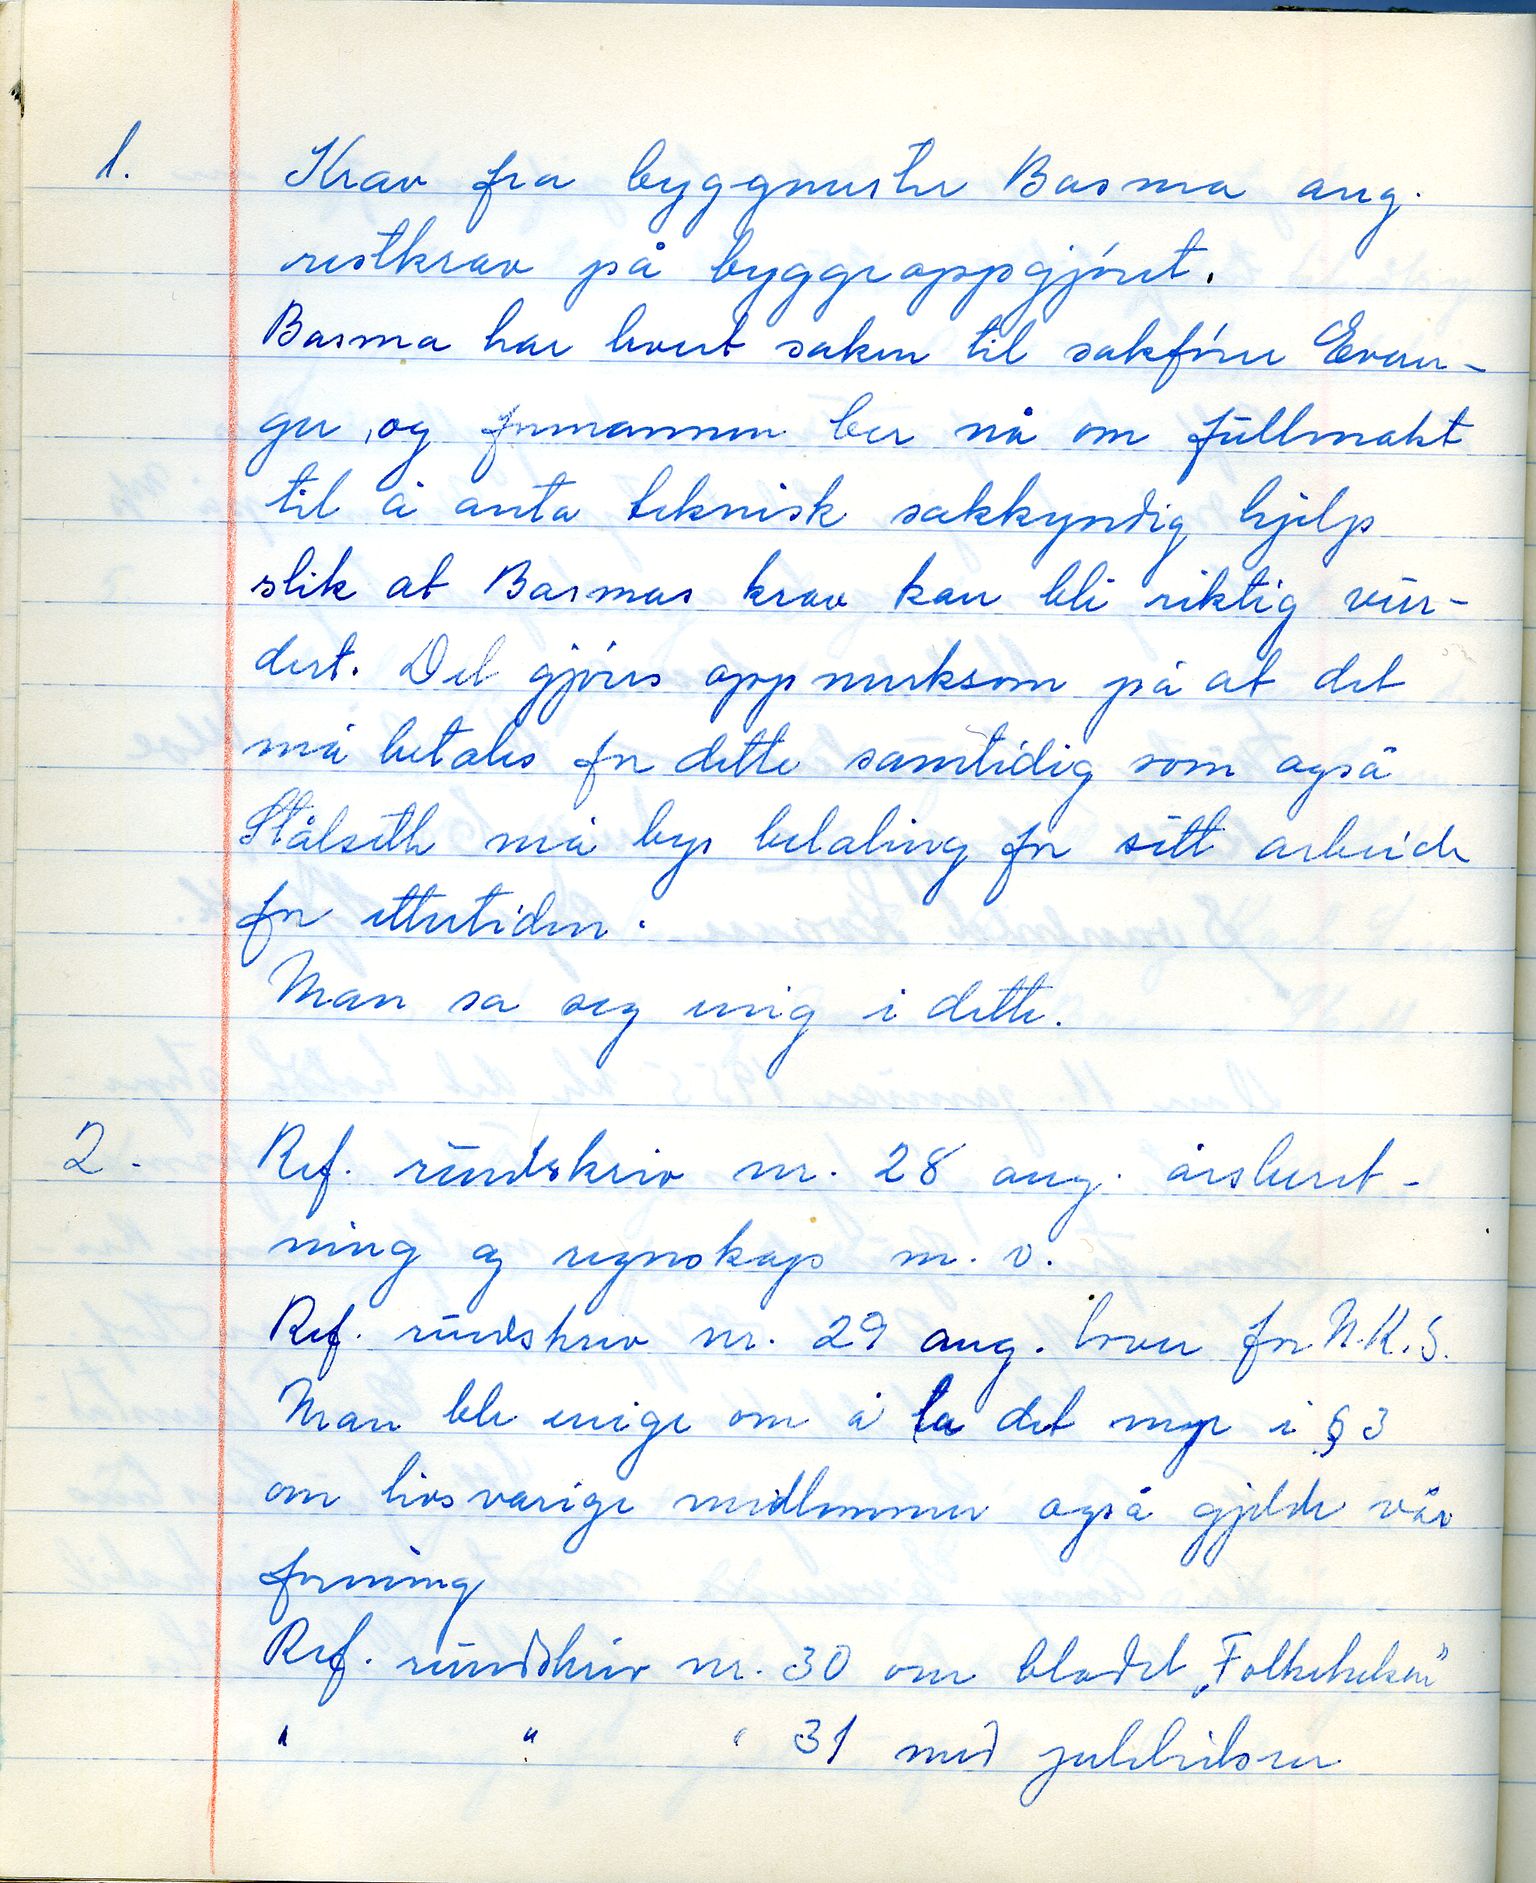 1. Krav fra byggmester Basma ang.
restkrav på byggeoppgjöret.
Basma har levert saken til sakförer Evan-
ger, og formannen ber nå om fullmakt
til å anta teknisk sakkyndig hjelp
slik at Basmas krav kan bli riktig vur-
dert. Det gjöres oppmerksom på at det
må betales for dette samtidig som også
Stålseth må bys betaling for sitt arbeide
for ettertiden.
Man sa seg enig i dette.
2. Ref. rundskriv nr. 28 ang. årsberet-
ning og regnskap m. v.
Ref. rundskriv nr. 29 ang. lover for N.K.S.
Man ble enige om å la det nye i § 3
om livsvarige medlemmer også gjelde vår
forening
Ref. rundskriv nr. 30 om bladet „Folkehelsen"
" " " 31 med julehilsener